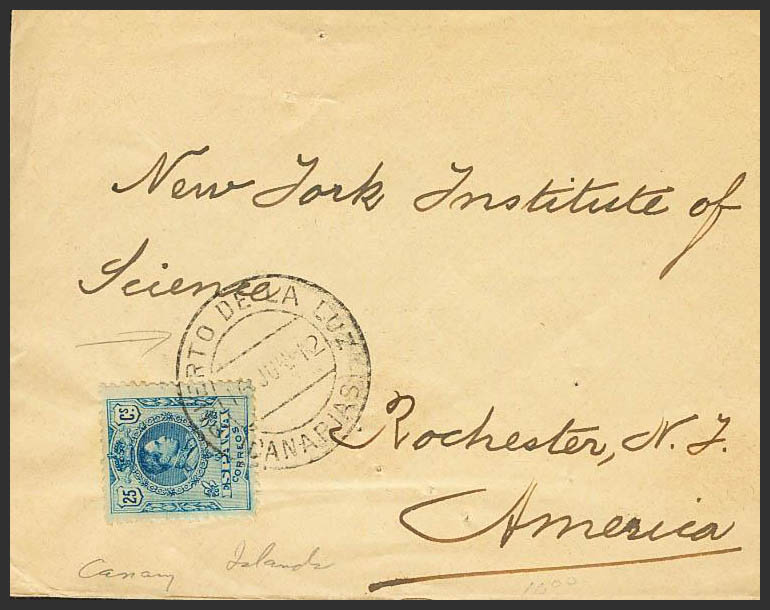 New York Institute of
Science
ERTO DE LA LUZ
JUN 12
(CANARIAS)
25 Cs.
ESPAÑA
CORREOS
Rochester, N. Y.
America
Canary Islands
1600